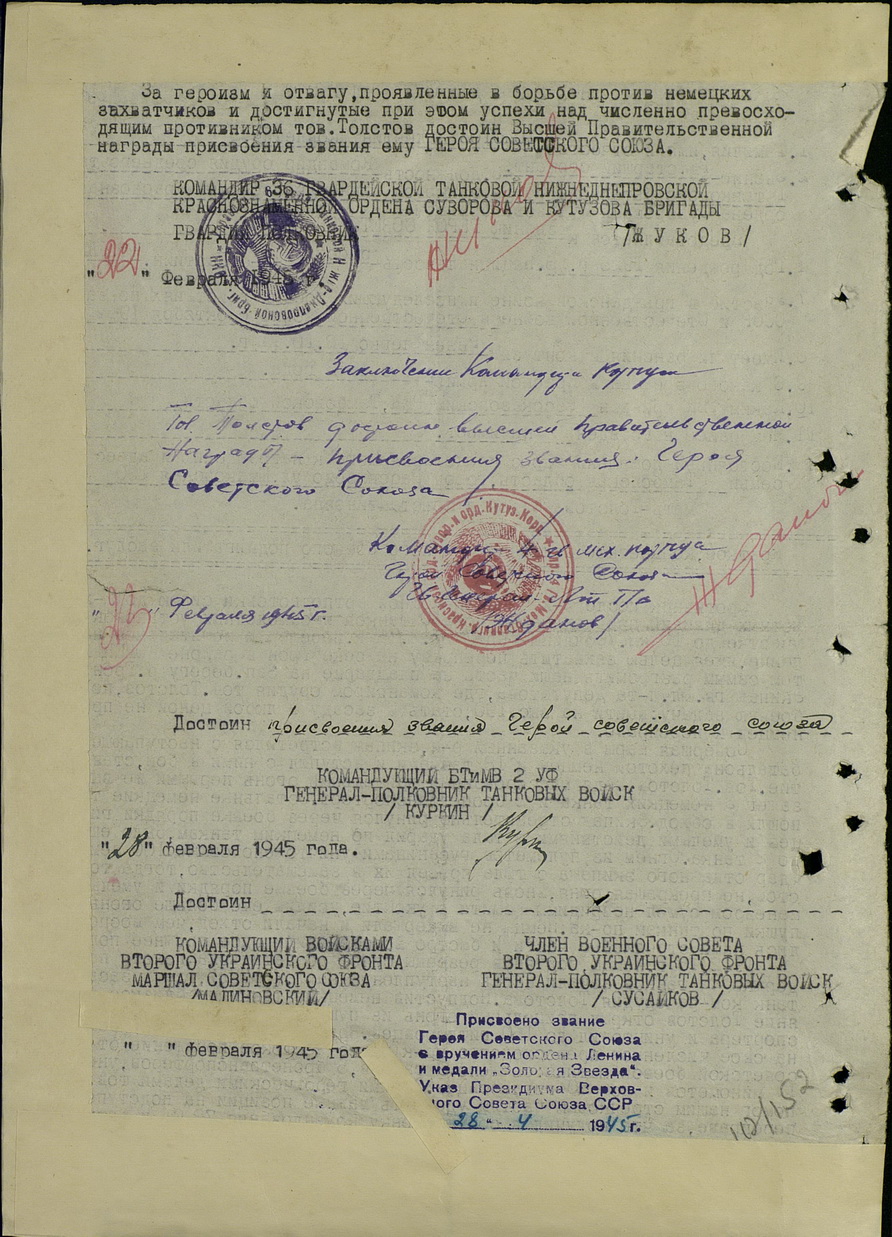 За героизм и отвагу,проявленные в борьбе против немецких
захватчиков и достигнутые при этом успехи над численно превосхо-
дящим противником тов.Толстов достоин Высшей Правительственной
награды присвоения звания ему ГЕРОЯ СОВЕТСКОГО СОЮЗА.
КОМАНДИР 36 ГВАРДЕЙСКОЙ ТАНКОВОЙ НИЖНЕДНЕПРОВСКОЙ
КРАСНОЗНАМЕННОЙ ОРДЕНА СУВОРОВА И КУТУЗОВА БРИГАДЫ
ГВАРДИИ ПОЛКОВНИК /ЖУКОВ/
"22" Февраля 1945 г.
Заключение Командира корпуса
Тов. Толстов достоин высшей правительственной
Награды – присвоения звания Героя
Советского Союза
Командир 4 гв мех. корпуса
Герой Советского Союза
/Жданов/
Жданов
" " Февраля 1945 г.
Достоин присвоения звания Герой советского союза
КОМАНДУЮЩИЙ БТиМВ 2 УФ
ГЕНЕРАЛ-ПОЛКОВНИК ТАНКОВЫХ ВОЙСК
/КУРКИН/
"28" февраля 1945 года.
Достоин
КОМАНДУЮЩИЙ ВОЙСКАМИ
ВТОРОГО УКРАИНСКОГО ФРОНТА
МАРШАЛ СОВЕТСКОГО СОЮЗА
/МАЛИНОВСКИЙ/
ЧЛЕН ВОЕННОГО СОВЕТА
ВТОРОГО УКРАИНСКОГО ФРОНТА
ГЕНЕРАЛ-ПОЛКОВНИК ТАНКОВЫХ ВОЙСК
/СУСАЙКОВ/
" " февраля 1945 года
Присвоено звание
Героя Советского Союза
с вручением ордена Ленина
и медали „Золотая Звезда".
Указ Президиума Верхов-
ного Совета Союза ССР
28 4 1945 г.